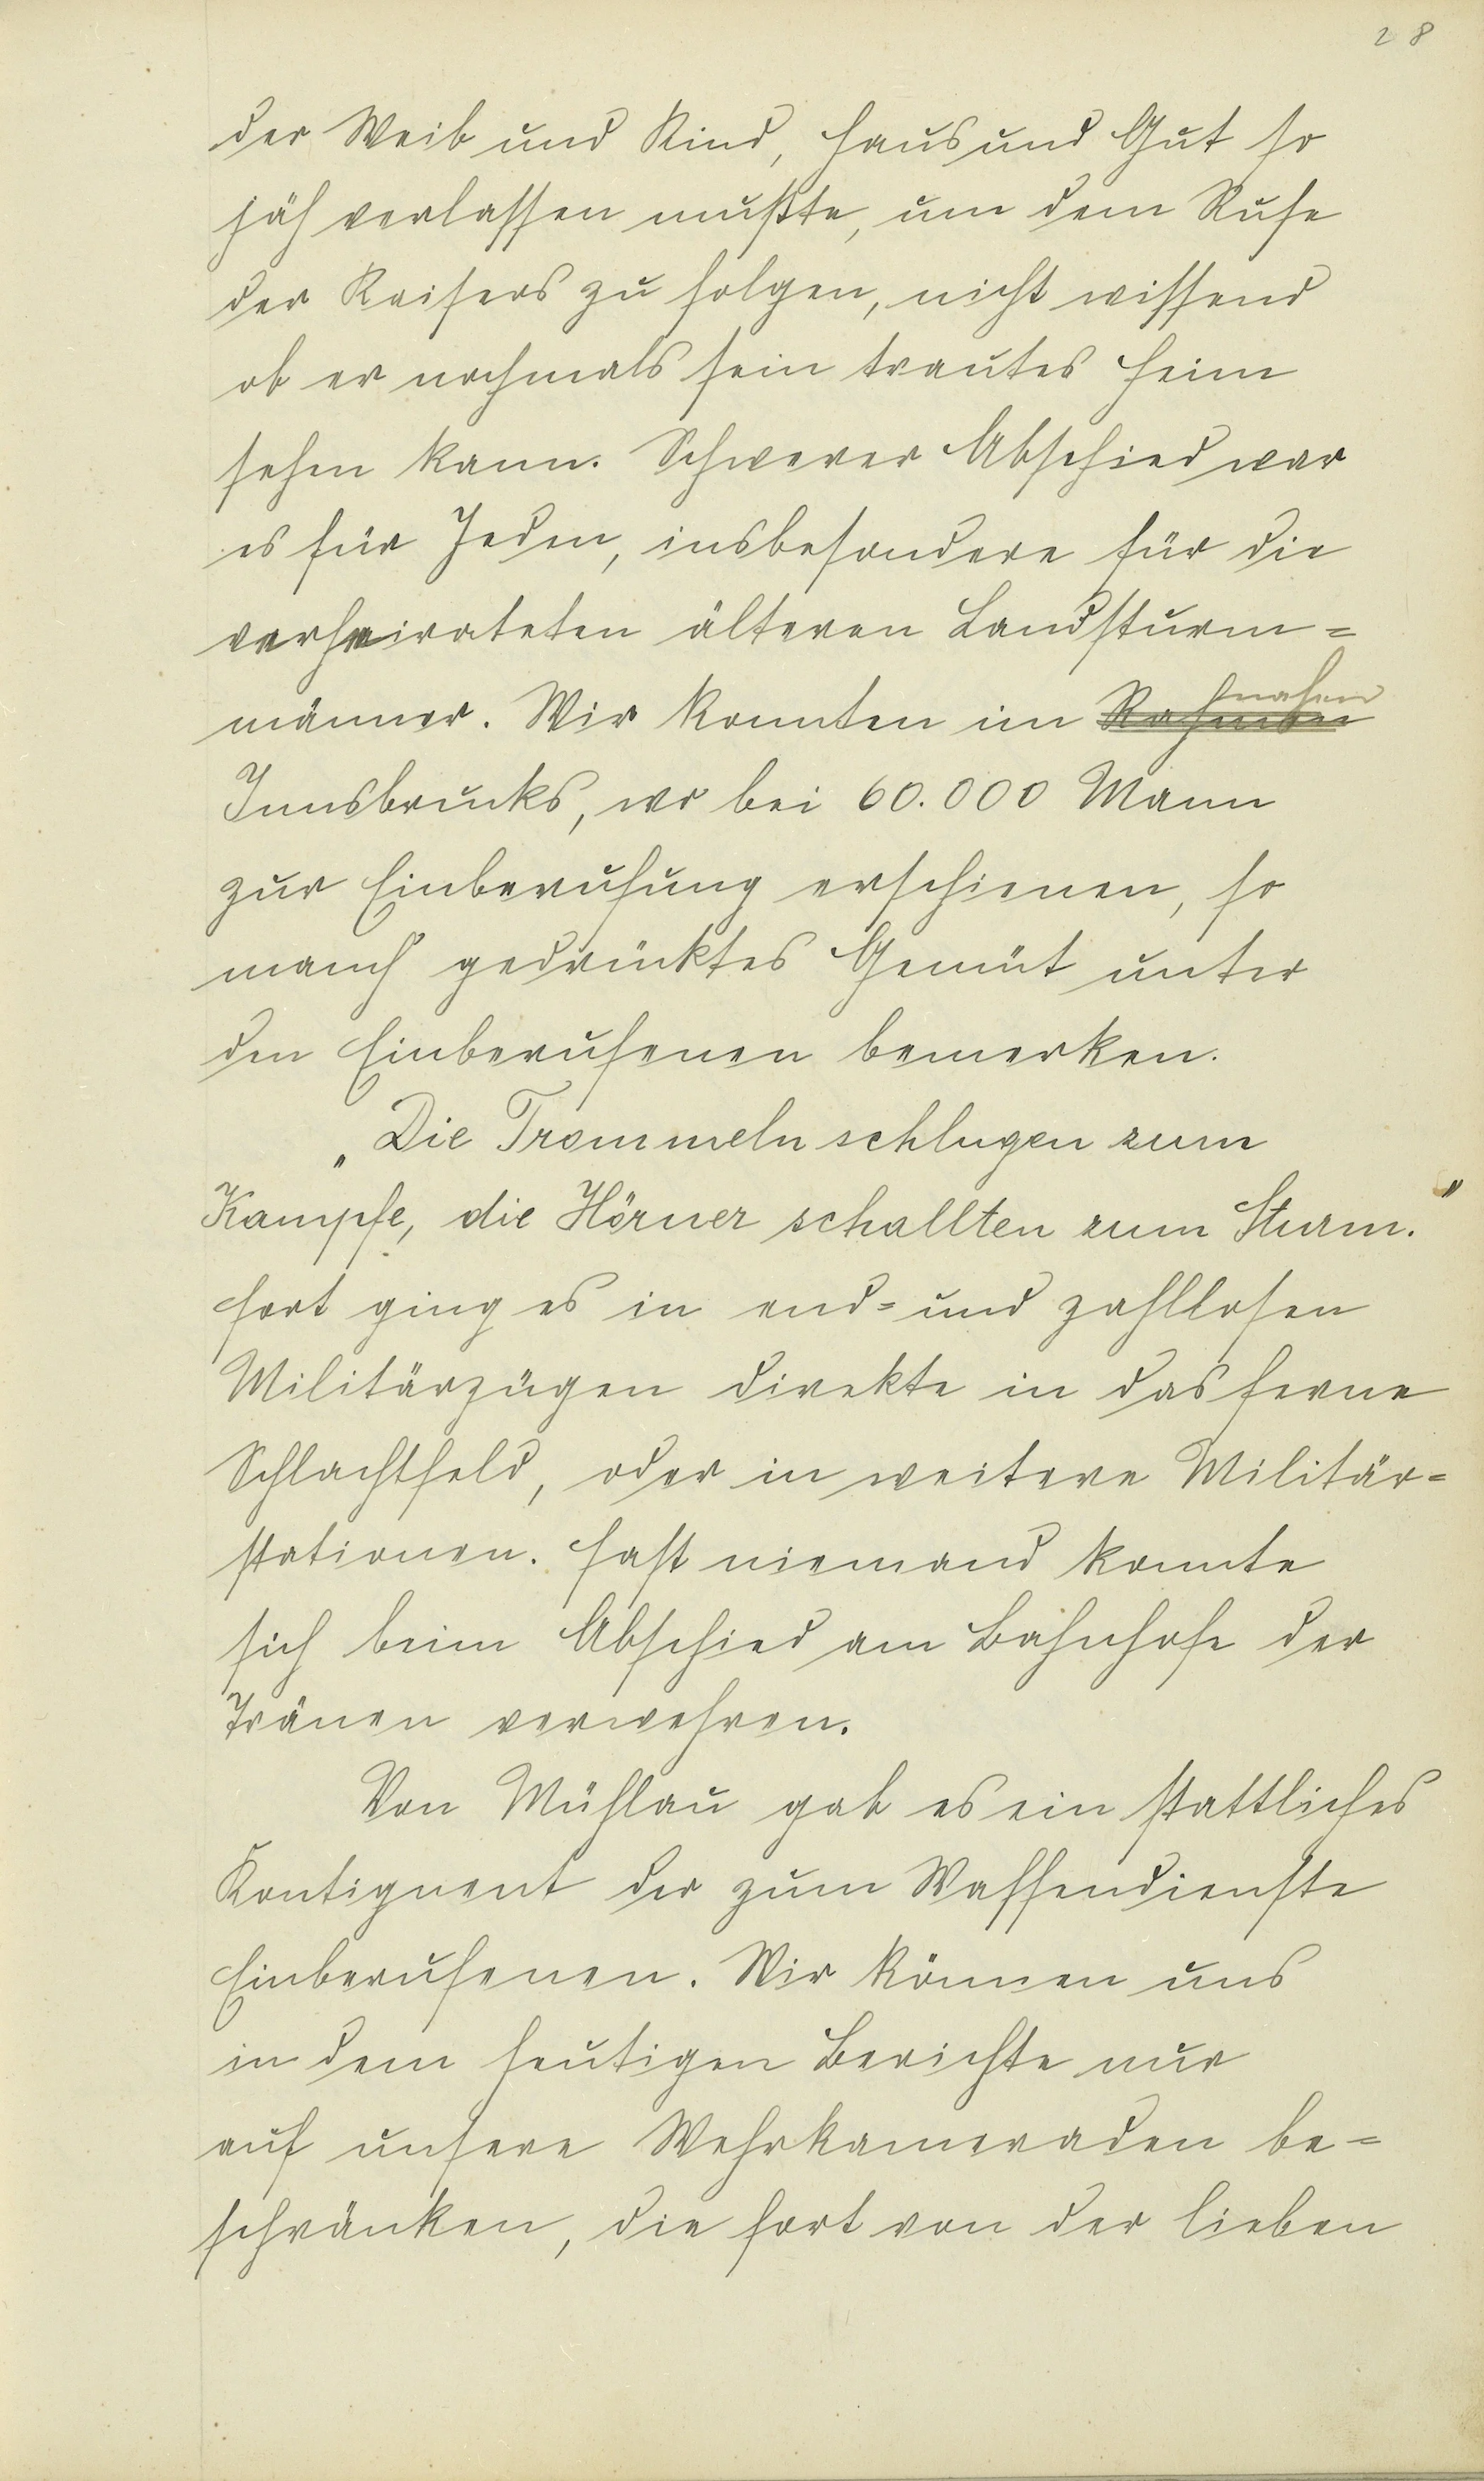 28
der Weib und Kind, Haus und Gut so
jäh verlassen mußte, um dem Rufe
der Kaisers zu folgen, nicht wissend
ob er nochmals sein trautes Heim
sehen kann. Schwerer Abschied war
es für Jeden, insbesondere für die
verheirateten älteren Landsturm=
männer. Wir konnten im
Innsbrucks, wo bei 60.000 Mann
zur Einberufung erschienen, so
manch gedrücktes Gemüt unter
den Einberufenen bemerken.
„Die Trommeln schlugen zum
Kampfe, die Hörner schallten zum Sturm."
Fort ging es in end= und zahllosen
Militärzügen direkte in das ferne
Schlachtfeld, oder in weitere Militär=
stationen. Fast niemand konnte
sich beim Abschied am Bahnhofe der
Tränen verwehren.
Von Mühlau gab es ein stattliches
Kontignent der zum Waffendienste
Einberufenen. Wir können uns
in dem heutigen Berichte nur
auf unsere Wehrkameraden be=
schränken, die fort von der lieben